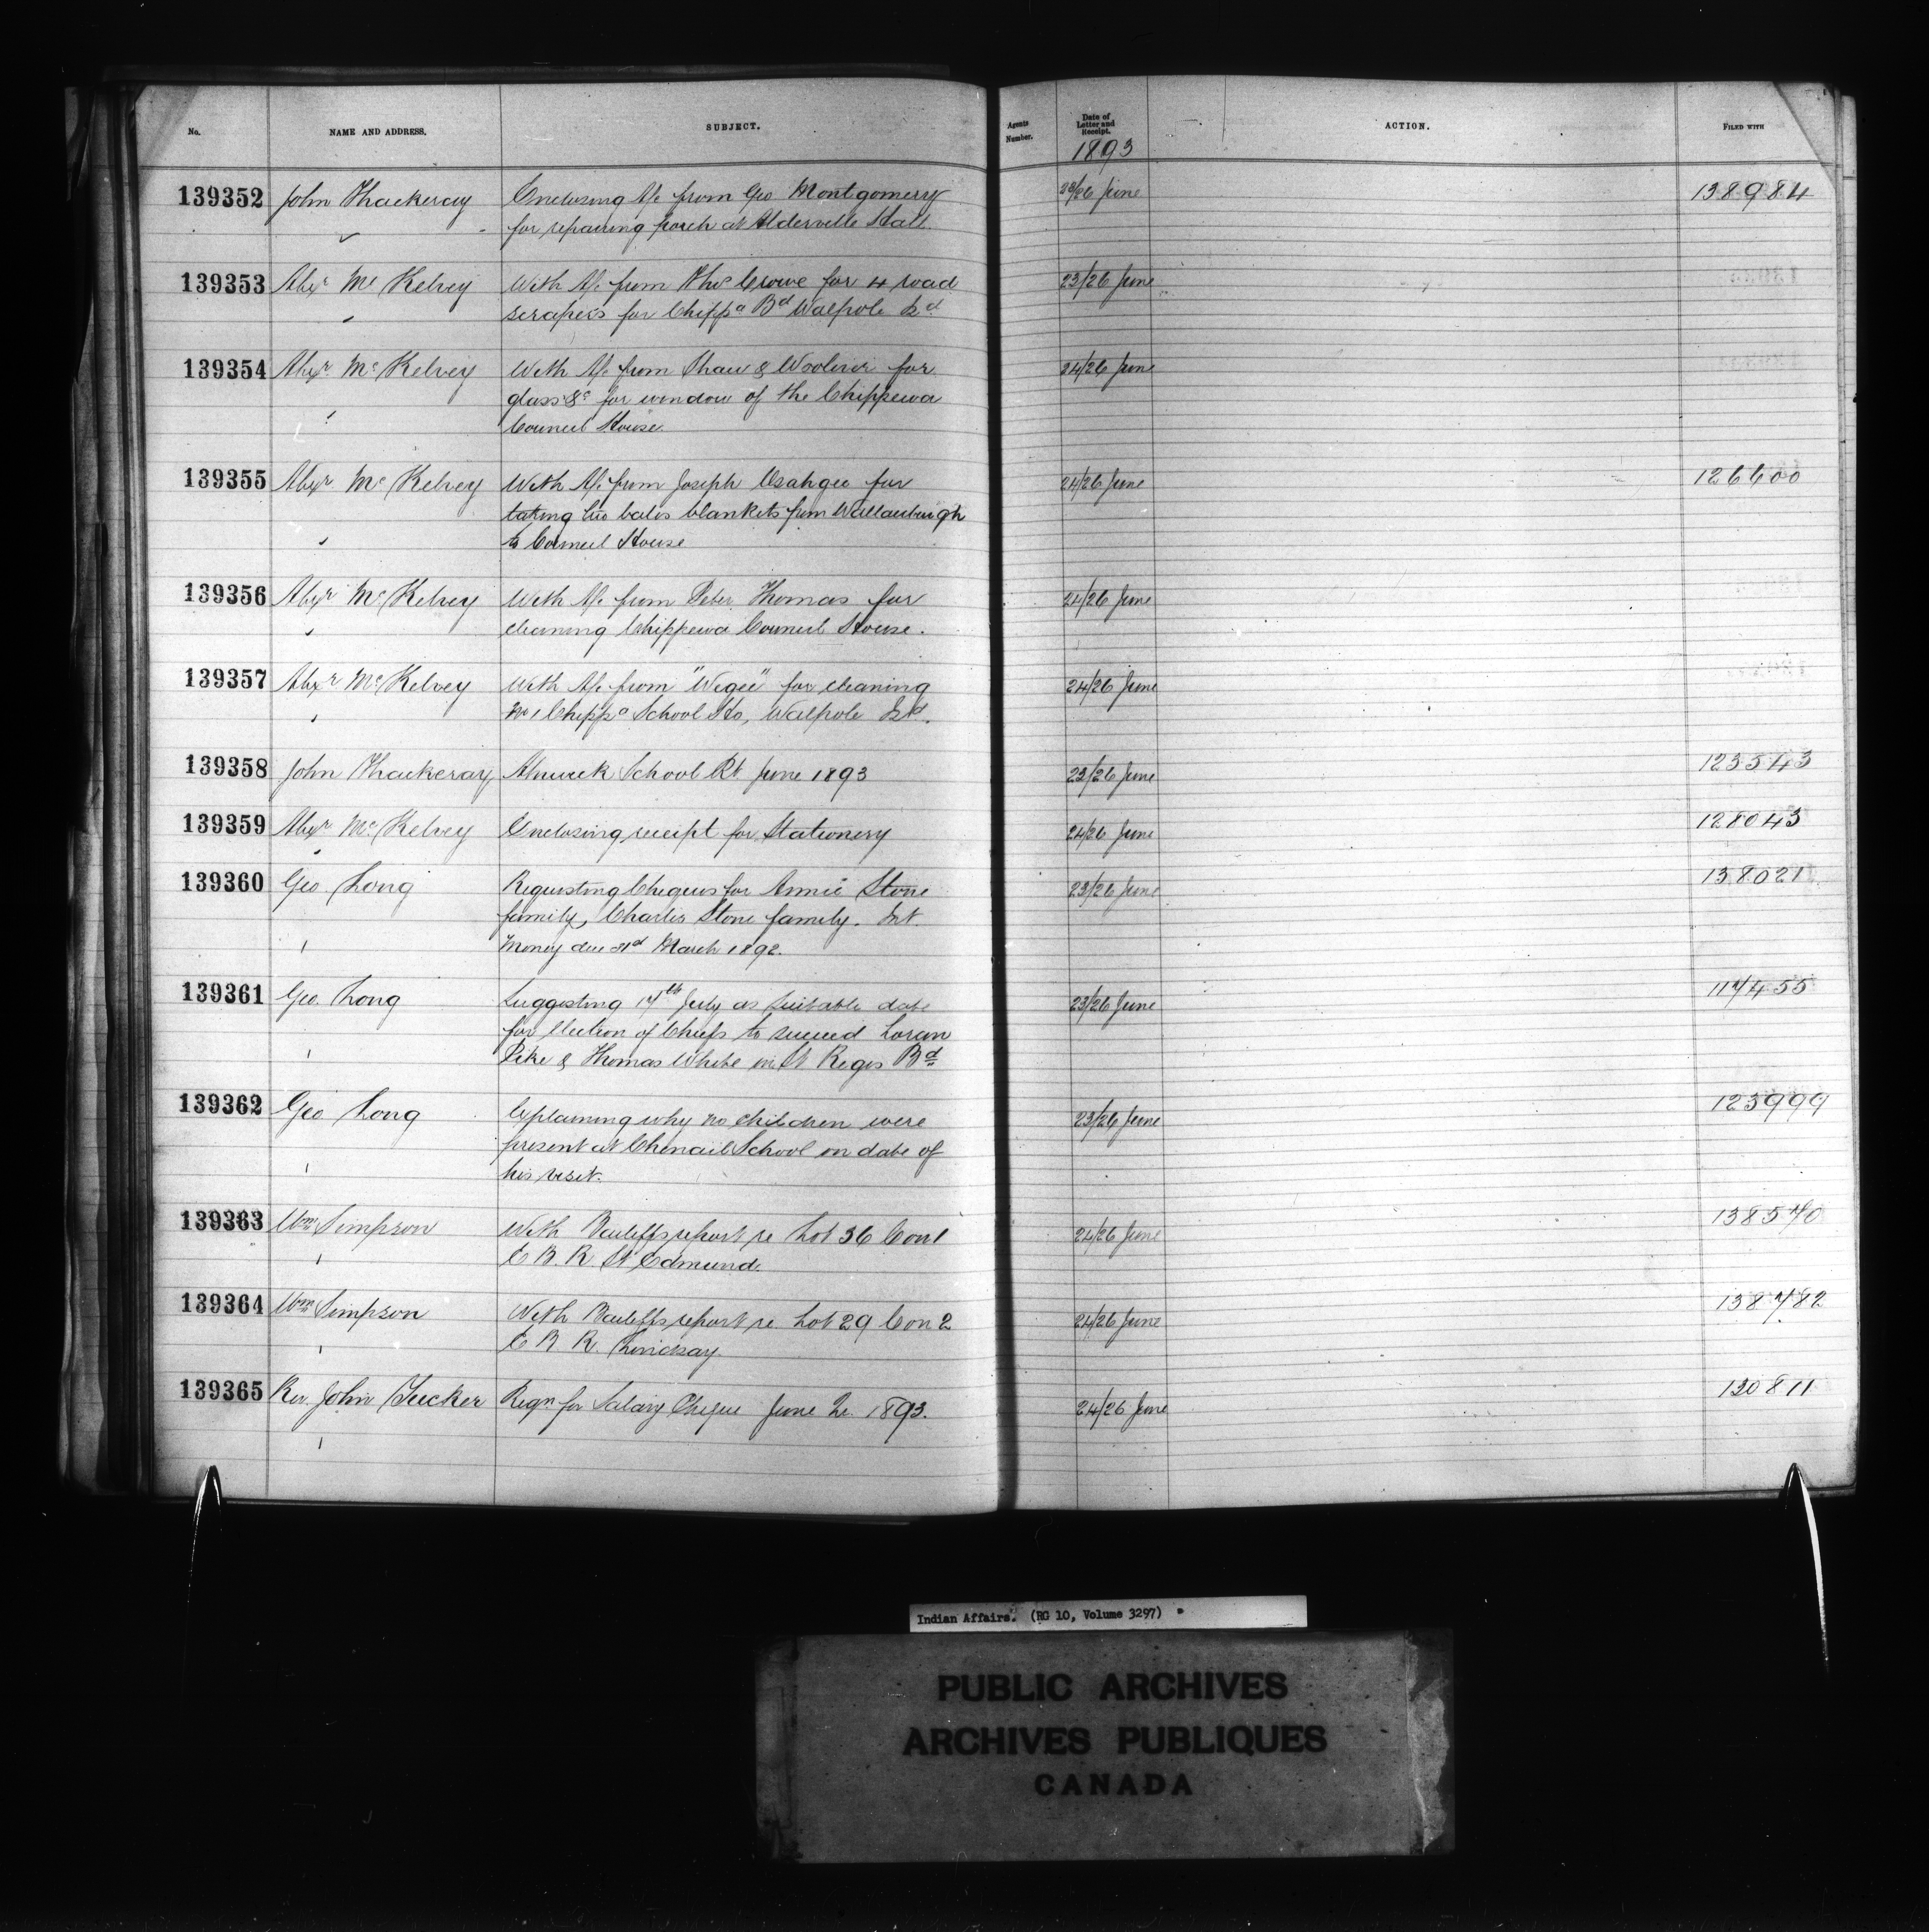 No. NAME AND ADDRESS. SUBJECT. Agents Number. Date of Letter and Receipt. ACTION. FILED WITH
1893
139352 John Thackeray Enclosing A/c from Geo Montgomery 23/26 June 138984
for repairing porch at Alderville Hall.
139353 Alexr McKelvey With A/c from Thos Crowe for 4 road 23/26 June
scrapers for Chippa Bd Walpole Isd
139354 Alexr McKelvey With A/c from Shaw & Wooliver for 24/26 June
glass &c for window of the Chippewa
Council House.
139355 Alexr McKelvey With A/c from Joseph Osahgee for 24/26 June 126600
taking two bales blankets from Wallaceburgh
to Council House
139356 Alexr McKelvey With A/c from Peter Thomas for 24/26 June
cleaning Chippewa Council House.
139357 Alexr McKelvey With A/c from "Wegee" for cleaning 24/26 June
No 1 Chippa School Ho, Walpole Isd.
139358 John Thackeray Alnwick School Rt June 1893 23/26 June 123543
139359 Alexr McKelvey Enclosing receipt for Stationery 24/26 June 128043
139360 Geo Long Requesting Cheques for Annie Stone 23/26 June 138021
family, Charles Stone family. Int.
Money due 31st March 1892.
139361 Geo Long Suggesting 17th July as suitable date 23/26 June 117455
for election of Chiefs to succeed Loran
Pike & Thomas White in St Regis Bd
139362 Geo Long Explaining why no children were 23/26 June 123999
present at Chenail School on date of
his visit.
139363 Wm Simpson With Bailiffs report re Lot 36 Con 1 24/26 June 138570
E B. R. St Edmund.
139364 Wm Simpson With Bailiffs report re Lot 29 Con 2 24/26 June 138782
E B R. Lindsay.
139365 Rev. John Tucker Reqn for Salary Cheque June Qr. 1893. 24/26 June 130811
Indian Affairs. (RG 10, Volume 3297)
PUBLIC ARCHIVES
ARCHIVES PUBLIQUES
CANADA